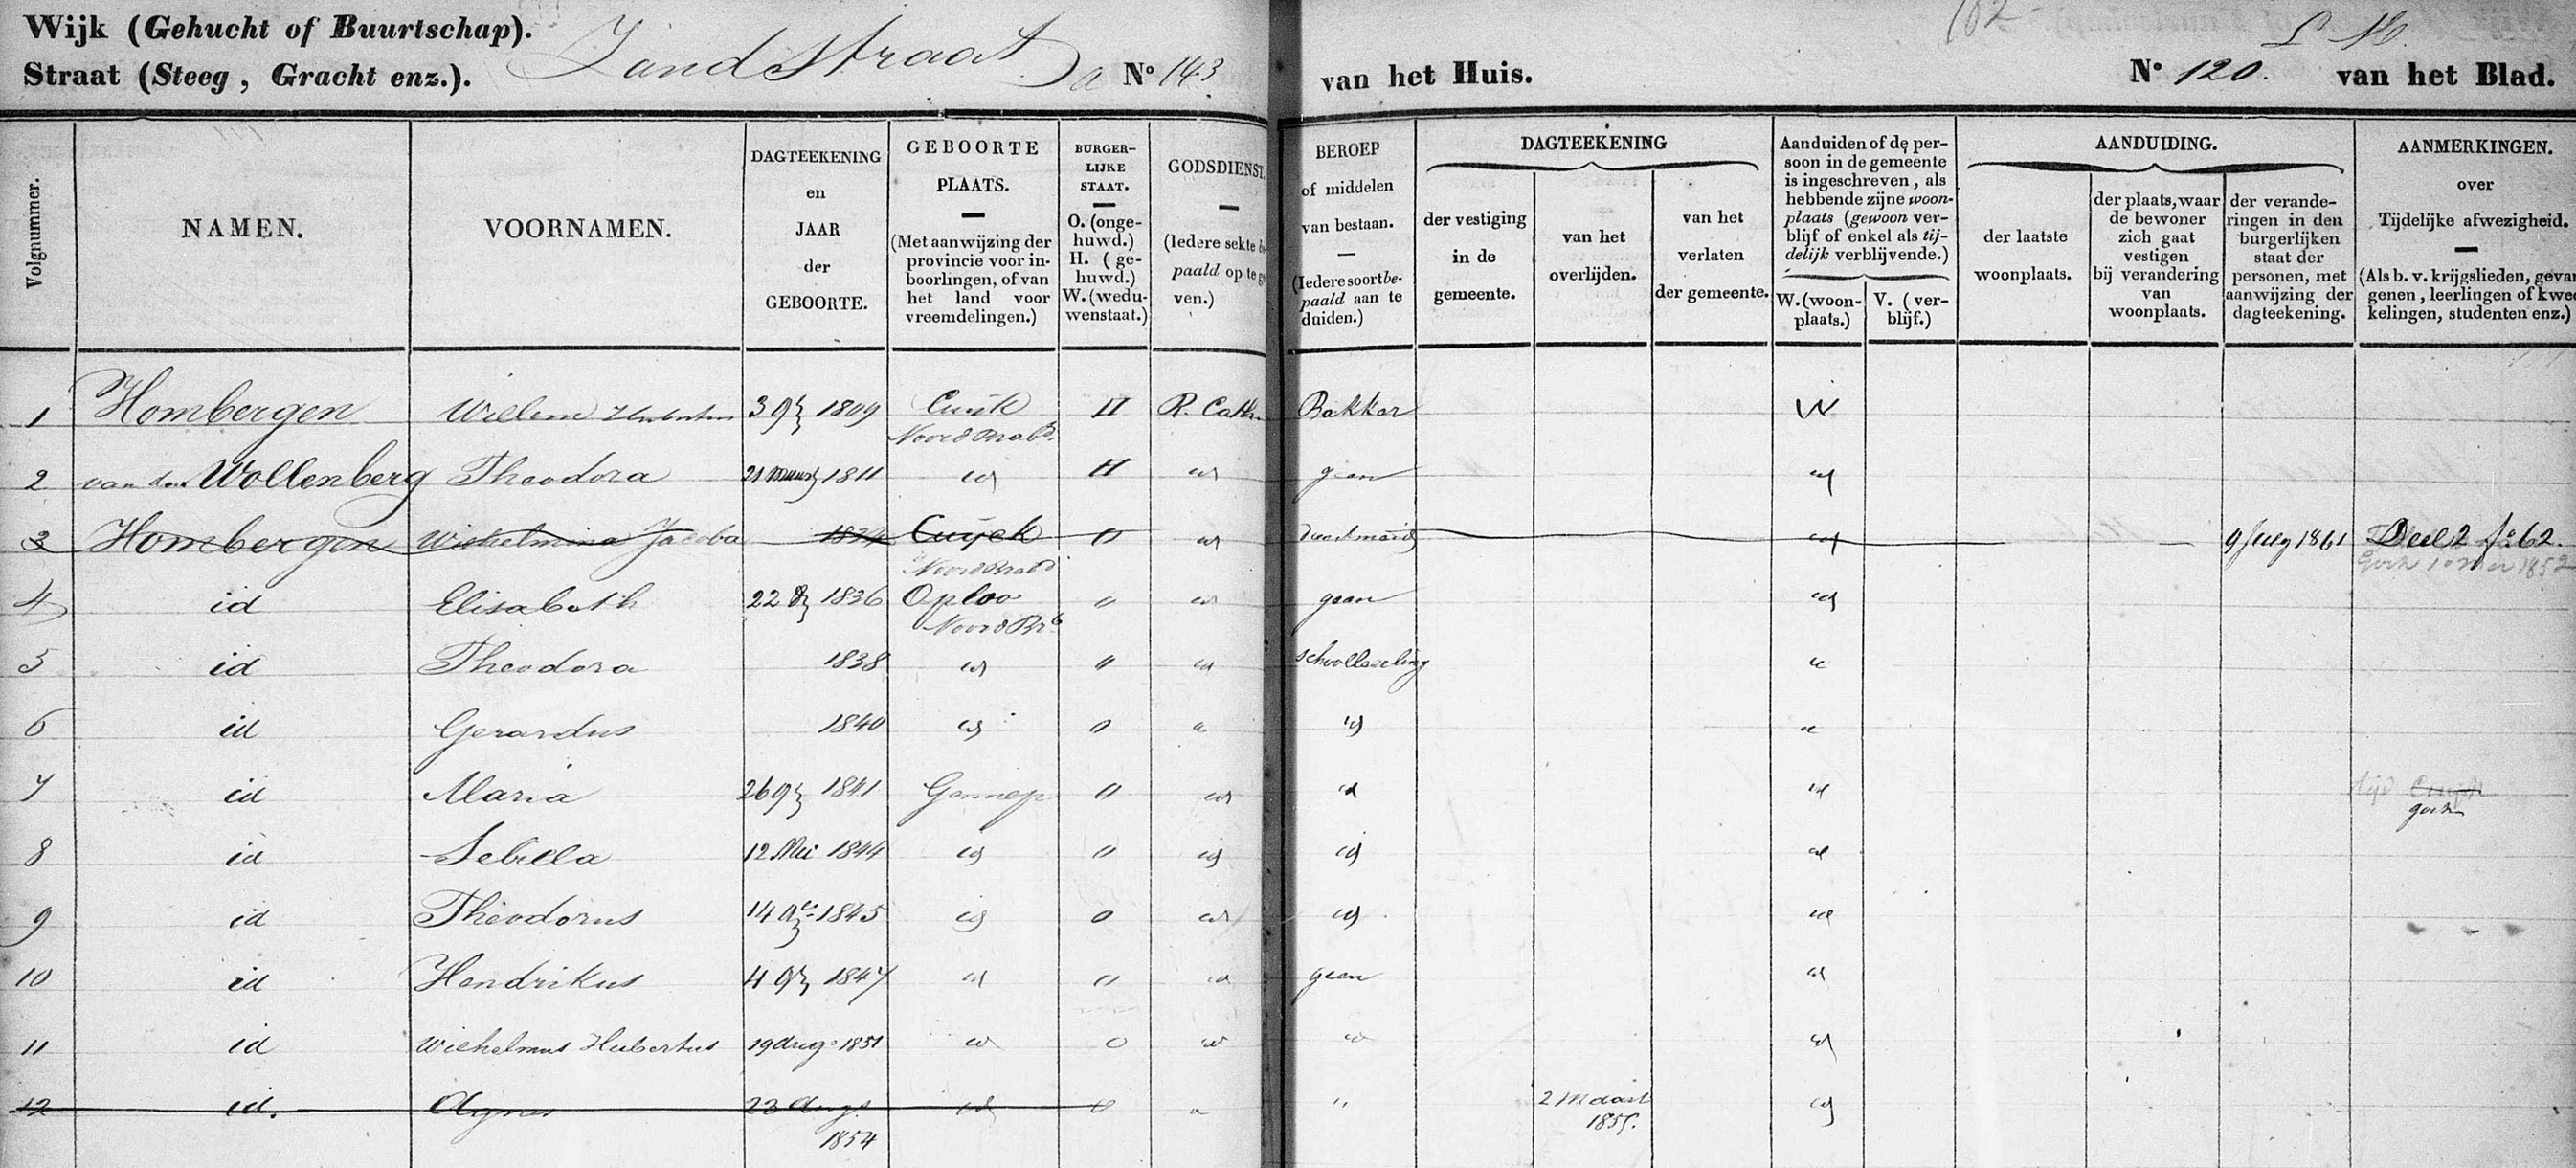 Wijk (Gehucht of Buurtschap).
Straat (Steeg, Gracht enz.). Zandstraat a No 143 van het Huis. No 120. van het Blad.
Volgnummer.
NAMEN.
VOORNAMEN.
DAGTEEKENING
en
JAAR
der
GEBOORTE.
GEBOORTE
PLAATS.
(Met aanwijzing der
provincie voor in-
boorlingen, of van
het land voor
vreemdelingen.)
BURGER-
LIJKE
STAAT.
O. (onge-
huwd.)
H. (ge-
huwd.)
W. (wedu-
wenstaat.)
GODSDIENST.
(Iedere sekte be-
paald op te ge-
ven.)
BEROEP
of middelen
van bestaan.
(Iedere soort be-
paald aan te
duiden.)
DAGTEEKENING
der vestiging
in de
gemeente.
van het
overlijden.
van het
verlaten
der gemeente.
Aanduiden of de per-
soon in de gemeente
is ingeschreven, als
hebbende zijne woon-
plaats (gewoon ver-
blijf of enkel als tij-
delijk verblijvende.)
W. (woon-
plaats.)
V. (ver-
blijf.)
AANDUIDING.
der laatste
woonplaats.
der plaats, waar
de bewoner
zich gaat
vestigen
bij verandering
van
woonplaats.
der verande-
ringen in den
burgerlijken
staat der
personen, met
aanwijzing der
dagteekening.
AANMERKINGEN.
over
Tijdelijke afwezigheid.
(Als b. v. krijgslieden, gevan
genen, leerlingen of kwee
kelingen, studenten enz.)
1 Hombergen Willem 3 9b 1809 Cuijk H R. Cath. Bakker W
Noord Brabd.
2 van den Wollenberg Theodora 21 1811 id H id geen id
3 Hombergen Wilhelmina Jacoba 1834 Cuijck O id id 9 July 1861 Deel 2 fo 62.
Noord Brabd
4 id Elisabeth 22 1836 Oploo " id geen id
Noord Brb
5 id Theodora 1838 id " id schoolleerling "
6 id Gerardus 1840 id O " id "
7 id Maria 26 9b 1841 Gennep O id id id tijd Cuijk
8 id Sebilla 12 Mei 1844 id O id id id
9 id Theodorus 14 1845 id O id id id
10 id Hendrikus 4 9b 1847 id O id geen id
11 id Wilhelmus Hubertus 19 Aug. 1851 id O id id id
12 id. Agnes 23 Augs id O " " 2 Maart id
1854 1855.